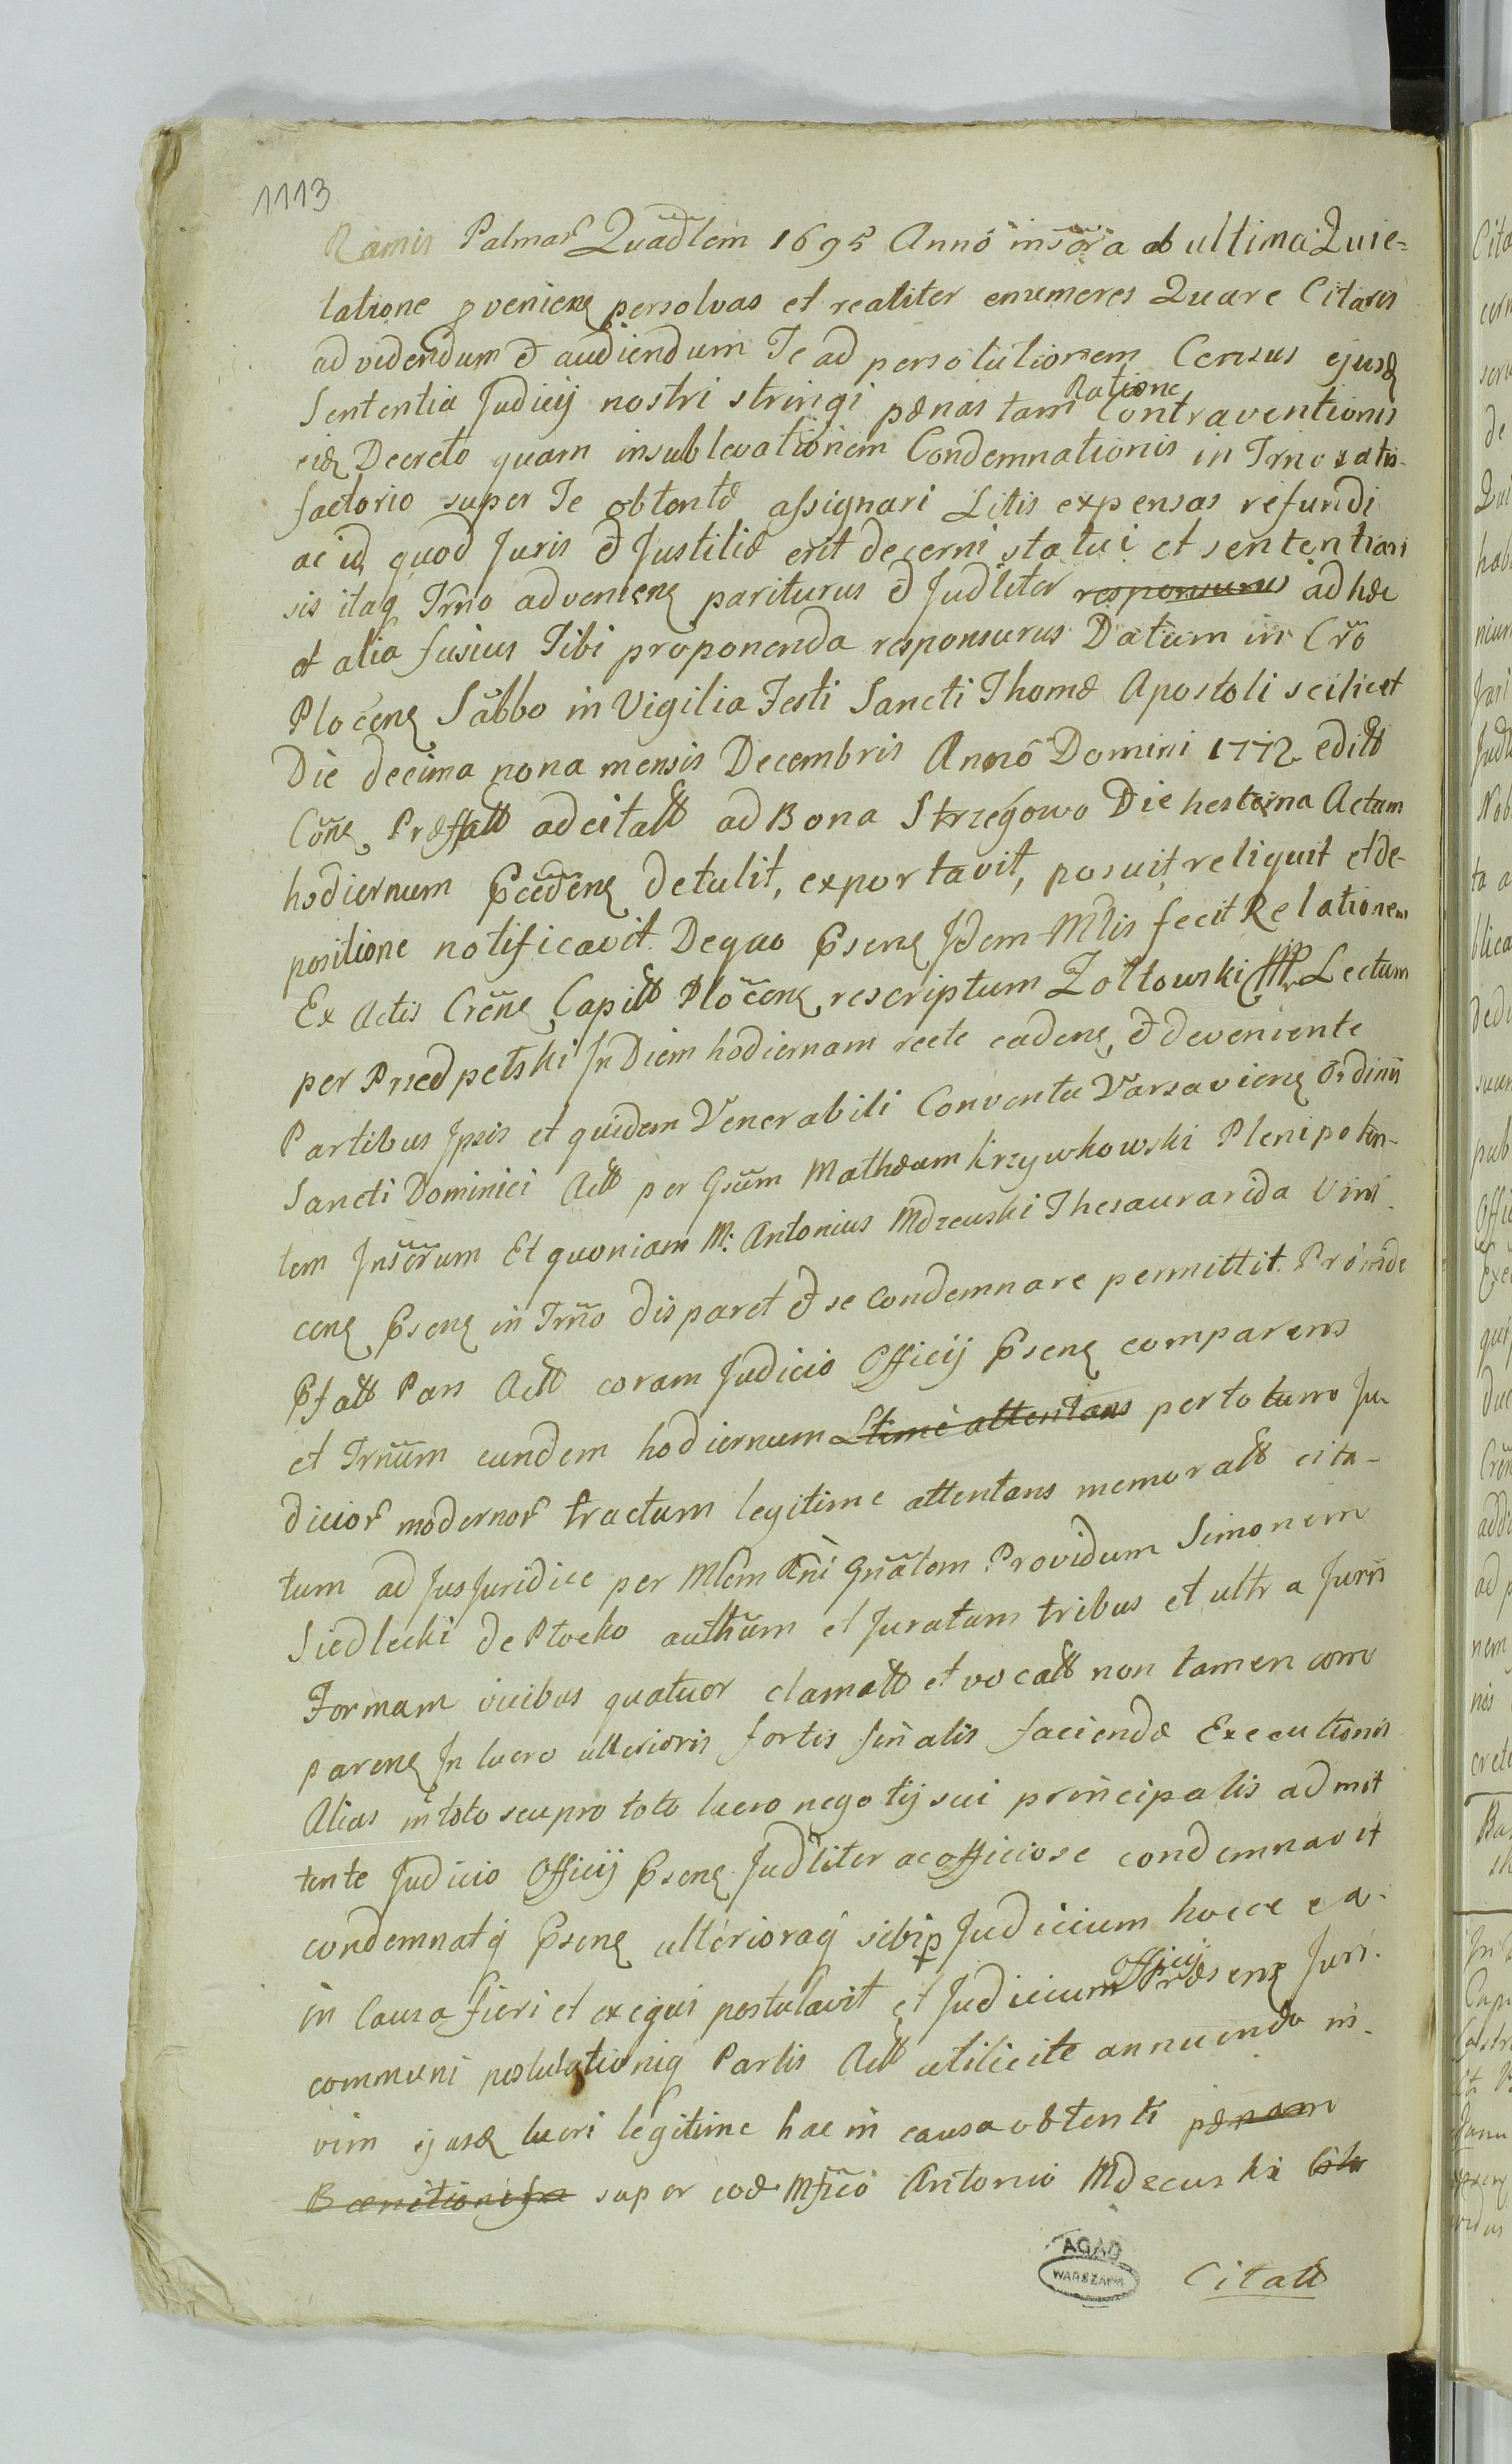 1113
Ramis Palmar Quadlem 1695 Anno inscra ab ultima Quie-
tatione pveniens persolvas et realiter enumeres Quare Citaris
ad videndum et audiendum Te ad persolutionem Census ejusd
Sententia Judicij nostri stringi pænas tam Ratione Contraventionis
eid Decreto quam insublevationem Condemnationis in Trno satis-
factorio super Te obtentæ assignari Litis expensas refundi
ac id quod Juris et Justitiæ erit decerni statui et sententiari
sis itaq Trno adveniens pariturus et Judliter responsurus ad hæc
et alia fusius Tibi proponenda responsurus Datum in Cro
Plocens Sabbo in Vigilia Festi Sancti Thomæ Apostoli scilicet
Die decima nona mensis Decembris Anno Domini 1772 edit
Cone Præfatt ad citatt ad Bona Strzegowo Die hesterna Actum
hodiernum Pcedens detulit, exportavit, posuit, reliquit et de-
positione notificavit. De quo Psens Idem Mlis fecit Relationem
Ex Actis Crens Capitt Plocens rescriptum Zołtowski Lectum
per Przedpełski In Diem hodiernam recte cadens et deveniente
Partibus Ipsis et quidem Venerabili Conventu Varsaviens Ordinis
Sancti Dominici Act per Gsum Mathæum Krzywkowski Plenipoten-
tem Inscrum Et quoniam M: Antonius Mdzeuski Thesaurarida Vini-
cens Psens in Trno disparet et se condemnare permittit. Proinde
Pfatt Pars Act coram Judicio Officij Psens comparens
et Trnum eundem hodiernum Ltime attentans per totum Ju-
dicior modernor tractum legitime attentans memoratt cita-
tum ad Jus Juridice per Mlem Rni Gnalem Providum Simonem
Siedlecki de Płocko authum et Juratum tribus et ultra Juris
Formam vicibus quatuor clamatt et vocatt non tamen com
parens In lucro ulterioris fortis finalis faciendæ Executionis
Alias in toto seu pro toto lucro negotij sui principalis admit
tente Judicio Officij Psens Judliter ac officiose condemnavit
condemnatq Psens ulterioraq sibi p Judicium hocce ea
in Causa fieri et exequi postulavit et Judicium Officij Præsens Juri
communi postulationiq Partis Act utilicite annuendo in
vim ejusd lucri legitime hac in causa obtenti pænam
Bannitionis super eod Mfico Antonio Mdzeuski
Citatt
AGAD
WARSZAWA